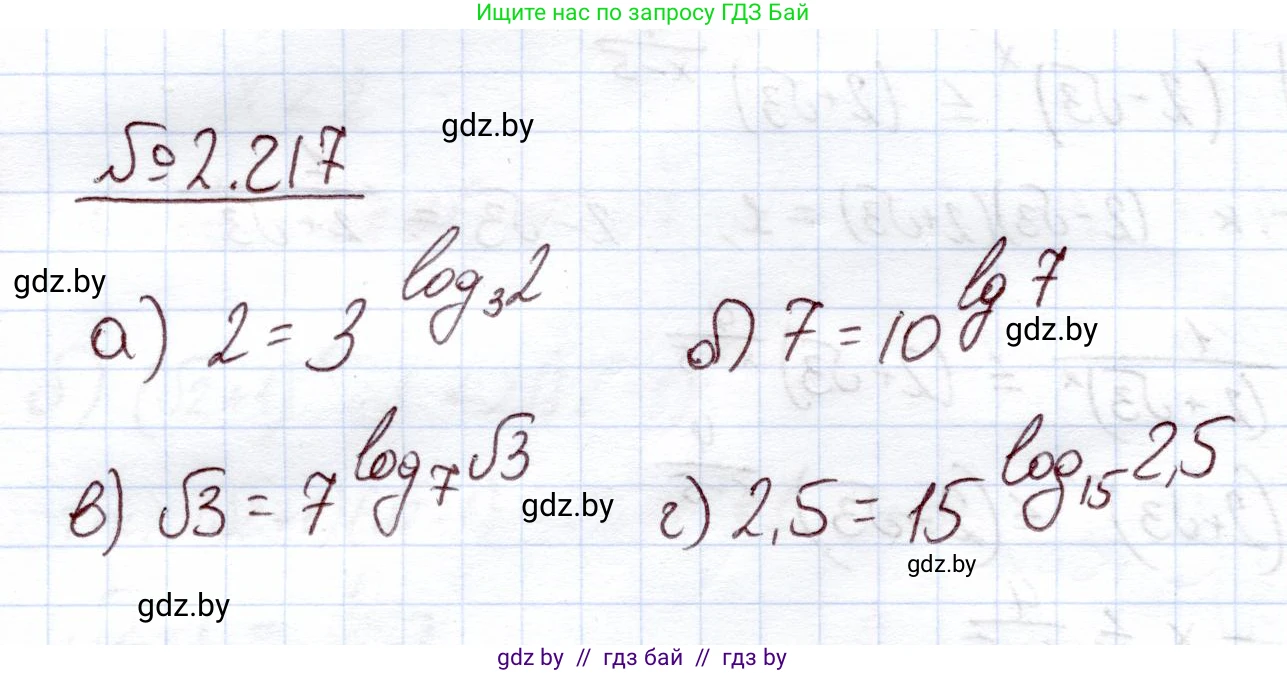 Ищите нас по запросу ГДЗ Бай
gdz.by
№ 2.217
gdz.by
а) 2 = 3^{log_3 2}
б) 7 = 10^{lg 7}
gdz.by
в) √3 = 7^{log_7 √3}
gdz.by
г) 2,5 = 15^{log_{15} 2,5}
gdz.by
gdz.by
gdz by // гдз бай // гдз by